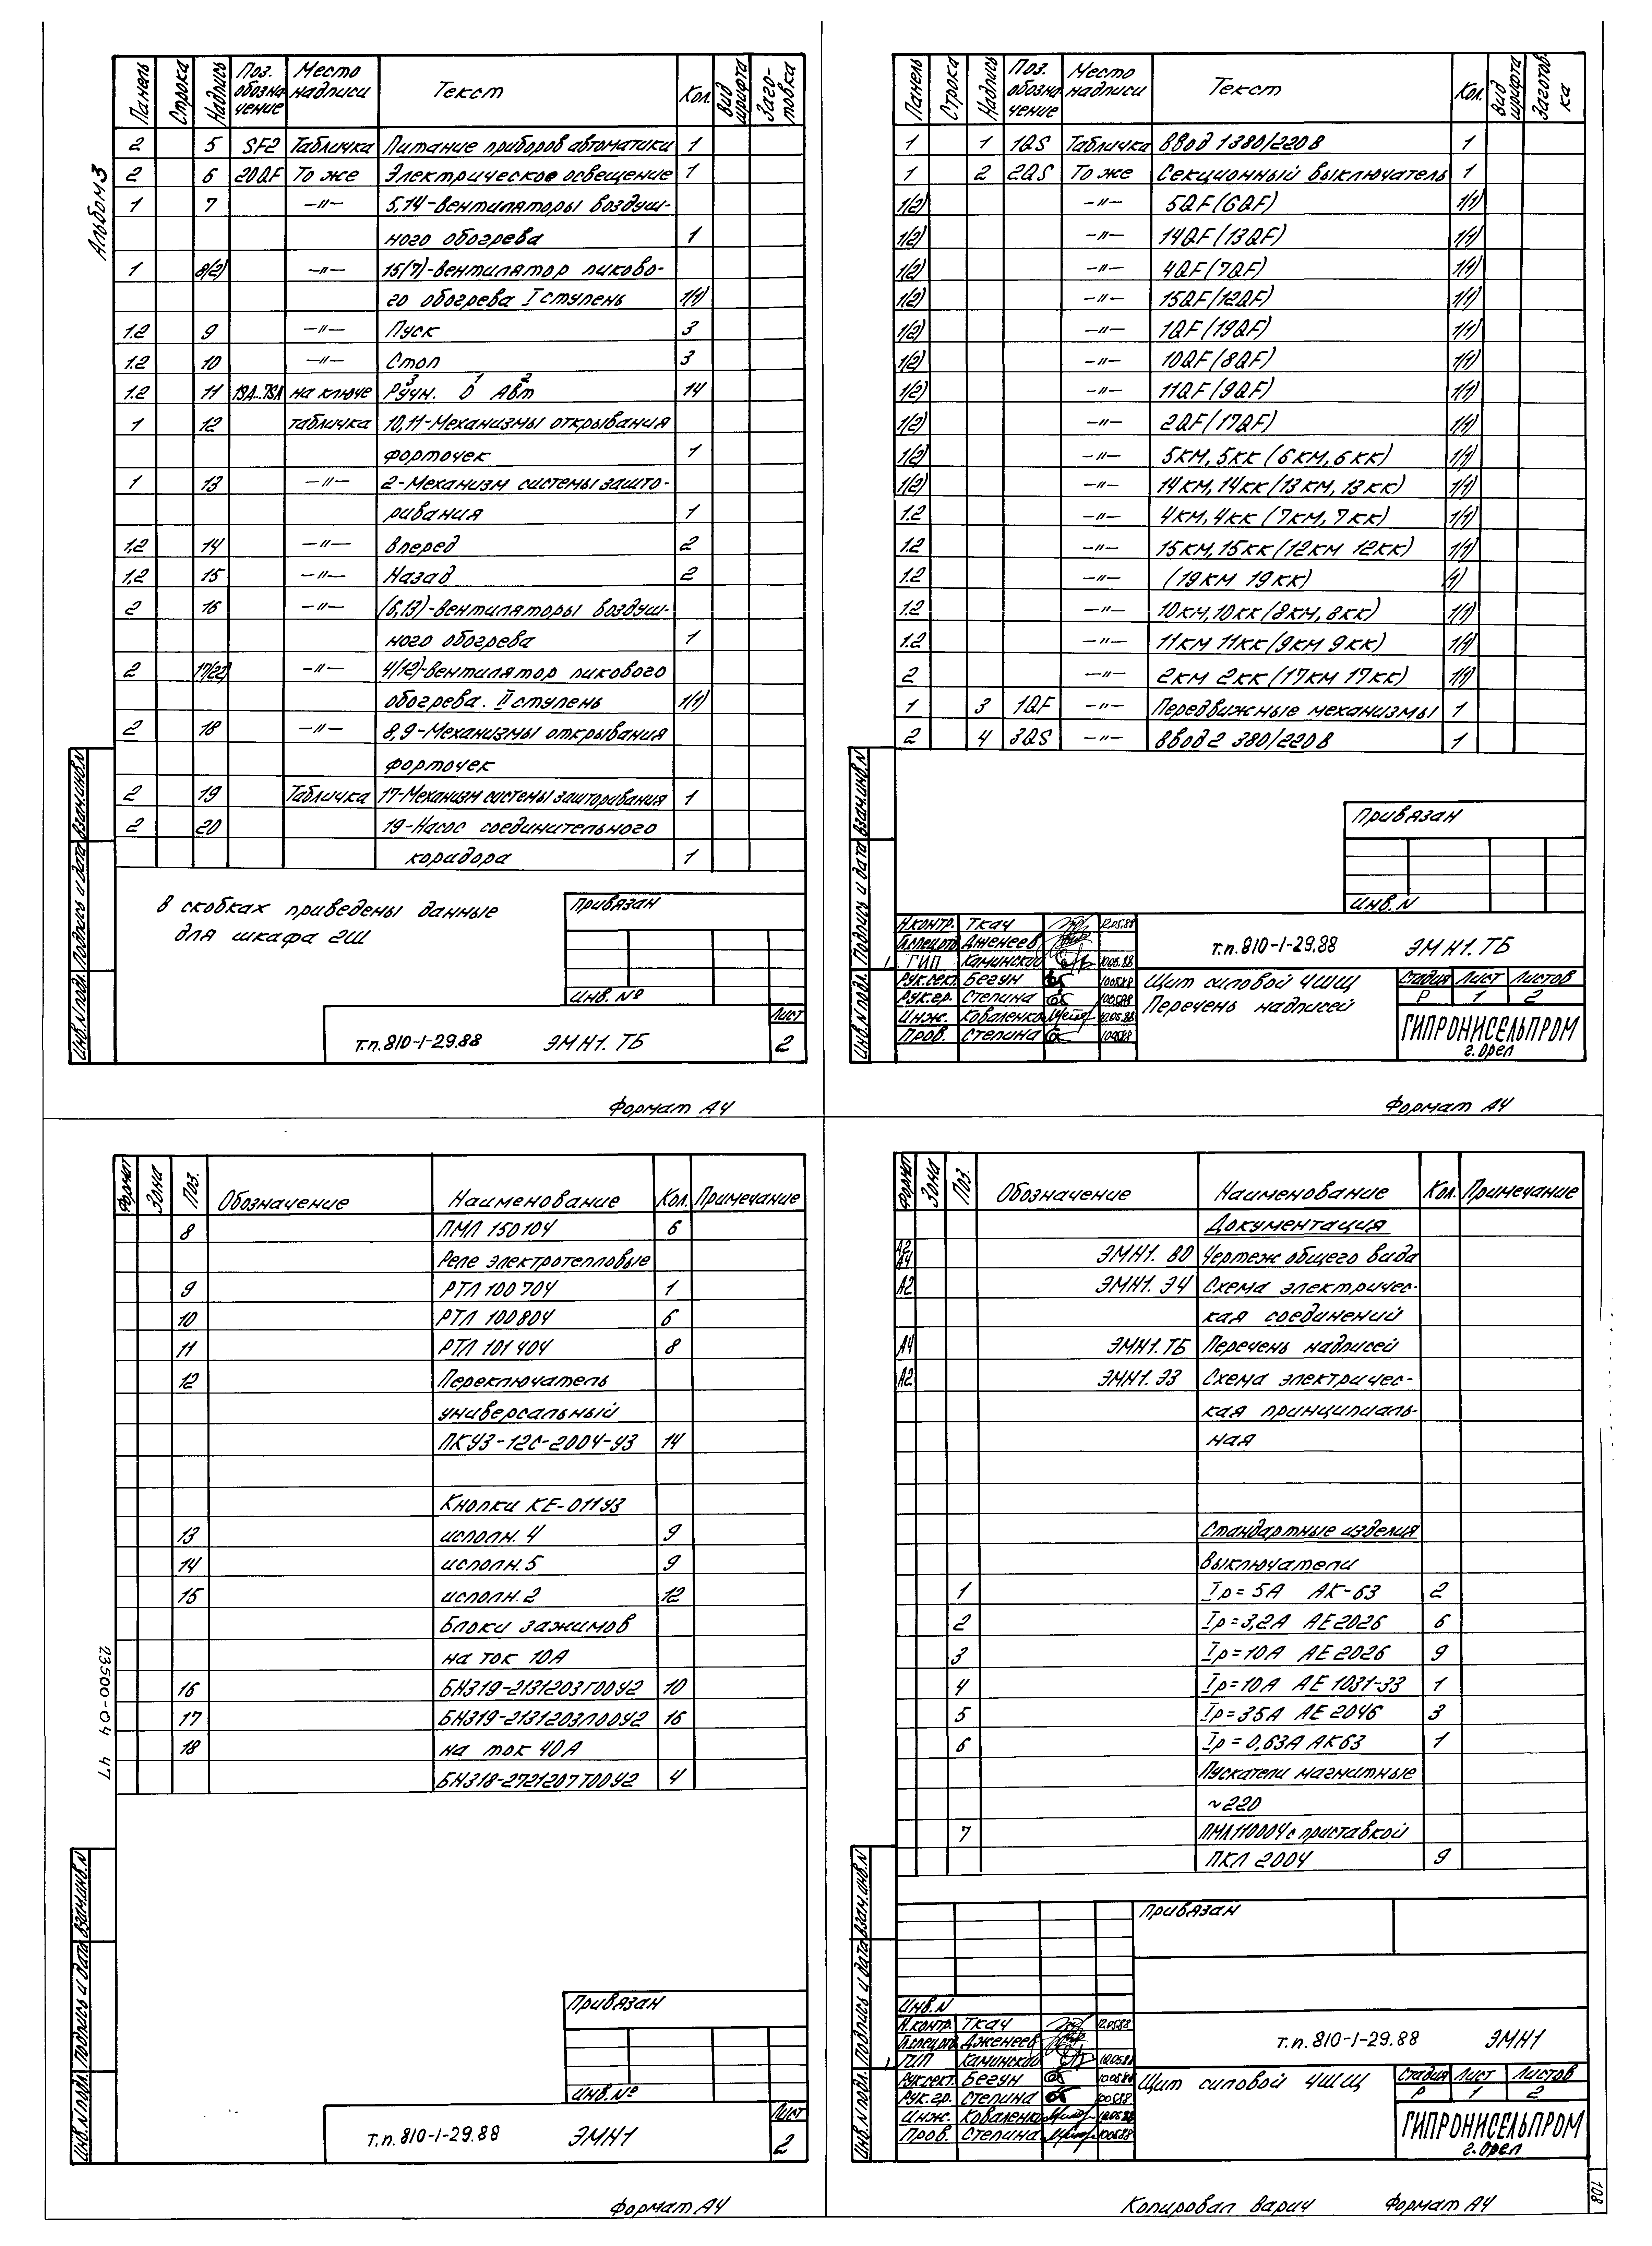 Альбом 3
Панель Строка Надпись Поз. обозна- чение Место надписи Текст Кол. Вид шрифта Заго- товка
2 5 SF2 Табличка Питание приборов автоматики 1
2 6 20QF То же Электрическое освещение 1
1 7 —"— 5,14-вентиляторы воздуш-
ного обогрева 1
1 8(2) —"— 15(7)-вентилятор пиково-
го обогрева I ступень 1(1)
1.2 9 —"— Пуск 3
1.2 10 —"— Стоп 3
3 1 2
1.2 11 1SA...7SA на ключе Ручн. 0 Авт 14
1 12 табличка 10,11-Механизмы открывания
форточек 1
1 13 —"— 2-Механизм системы зашто-
ривания 1
1,2 14 —"— Вперед 2
1,2 15 —"— Назад 2
2 16 —"— (6,13)-вентиляторы воздуш-
ного обогрева 1
2 17(22) —"— 4(12)-вентилятор пикового
обогрева. II ступень 1(1)
2 18 —"— 8,9-Механизмы открывания
форточек
2 19 Табличка 17-Механизм системы зашторивания 1
2 20 19-Насос соединительного
коридора 1
В скобках приведены данные
для шкафа 2Ш
Привязан
Инв. №
т.п. 810-1-29.88 ЭМН1. ТБ
Лист
2
Инв.N подл. Подпись и дата Взам.инв.N
Формат А4
Панель Строка Надпись Поз. обозна- чение Место надписи Текст Кол. Вид шрифта Заготов ка
1 1 1QS Табличка Ввод 1 380/220 В 1
1 2 2QS То же Секционный выключатель 1
1(2) —"— 5QF(6QF) 1(1)
1(2) —"— 14QF(13QF) 1(1)
1(2) —"— 4QF(7QF) 1(1)
1(2) —"— 15QF(12QF) 1(1)
1(2) —"— 1QF(19QF) 1(1)
1(2) —"— 10QF(8QF) 1(1)
1(2) —"— 11QF(9QF) 1(1)
1(2) —"— 2QF(17QF) 1(1)
1(2) —"— 5КМ,5КК (6КМ,6КК) 1(1)
1(2) —"— 14КМ,14КК(13КМ,13КК) 1(1)
1.2 —"— 4КМ,4КК (7КМ,7КК) 1(1)
1.2 —"— 15КМ,15КК(12КМ 12КК) 1(1)
1.2 —"— (19КМ 19КК) (1)
1.2 —"— 10КМ,10КК(8КМ,8КК) 1(1)
1.2 —"— 11КМ 11КК(9КМ 9КК) 1(1)
2 —"— 2КМ 2КК(17КМ 17КК) 1(1)
1 3 1QF —"— Передвижные механизмы 1
2 4 3QS —"— Ввод 2 380/220 В 1
Привязан
Инв.N
Н.контр. Ткач 12.05.88
Гл.спец.отд. Дженеев
ГИП Каминский 10.05.88
Рук.сект. Бегун 10.05.88
Рук.гр. Степина 10.05.88
Инж. Коваленко 10.05.88
Пров. Степина 10.05.88
т.п. 810-1-29.88 ЭМН1. ТБ
Щит силовой ЧШЩ
Перечень надписей
Стадия Лист Листов
Р 1 2
ГИПРОНИСЕЛЬПРОМ
г. Орел
Инв.N подл. Подпись и дата Взам.инв.N
Формат А4
Формат Зона Поз. Обозначение Наименование Кол. Примечание
8 ПМЛ 150104 6
Реле электротепловые
9 РТЛ 100704 1
10 РТЛ 100804 6
11 РТЛ 101404 8
12 Переключатель
универсальный
ПКУ3-12С-2004-У3 14
Кнопки КЕ-011У3
13 исполн. 4 9
14 исполн. 5 9
15 исполн. 2 12
Блоки зажимов
на ток 10А
16 БНЗ19-2131203Г00У2 10
17 БНЗ19-2131203Л00У2 16
18 на ток 40А
БНЗ18-2721207Т00У2 4
23500-04 47
Привязан
Инв. №
т.п. 810-1-29.88 ЭМН1
Лист
2
Инв.N подл. Подпись и дата Взам.инв.N
Формат А4
Формат Зона Поз. Обозначение Наименование Кол. Примечание
Документация
А2 А4 ЭМН1. ВО Чертеж общего вида
А2 ЭМН1. Э4 Схема электричес-
кая соединений
А4 ЭМН1.ТБ Перечень надписей
А2 ЭМН1. Э3 Схема электричес-
кая принципиаль-
ная
Стандартные изделия
Выключатели
1 Iр = 5А АК-63 2
2 Iр=3,2А АЕ2026 6
3 Iр=10А АЕ 2026 9
4 Iр=10А АЕ 1031-33 1
5 Iр=35А АЕ 2046 3
6 Iр = 0,63А АК63 1
Пускатели магнитные
~220
7 ПМЛ110004 с приставкой
ПКЛ 2004 9
Привязан
Инв.N
Н.контр. Ткач 12.05.88
Гл.спец.отд. Дженеев
ГИП Каминский 10.05.88
Рук.сект. Бегун 10.05.88
Рук.гр. Степина 10.05.88
Инж. Коваленко 10.05.88
Пров. Степина 10.05.88
т.п. 810-1-29.88 ЭМН1
Щит силовой ЧШЩ
Стадия Лист Листов
Р 1 2
ГИПРОНИСЕЛЬПРОМ
г. Орел
Инв.N подл. Подпись и дата Взам.инв.N
Копировал Варич Формат А4
108